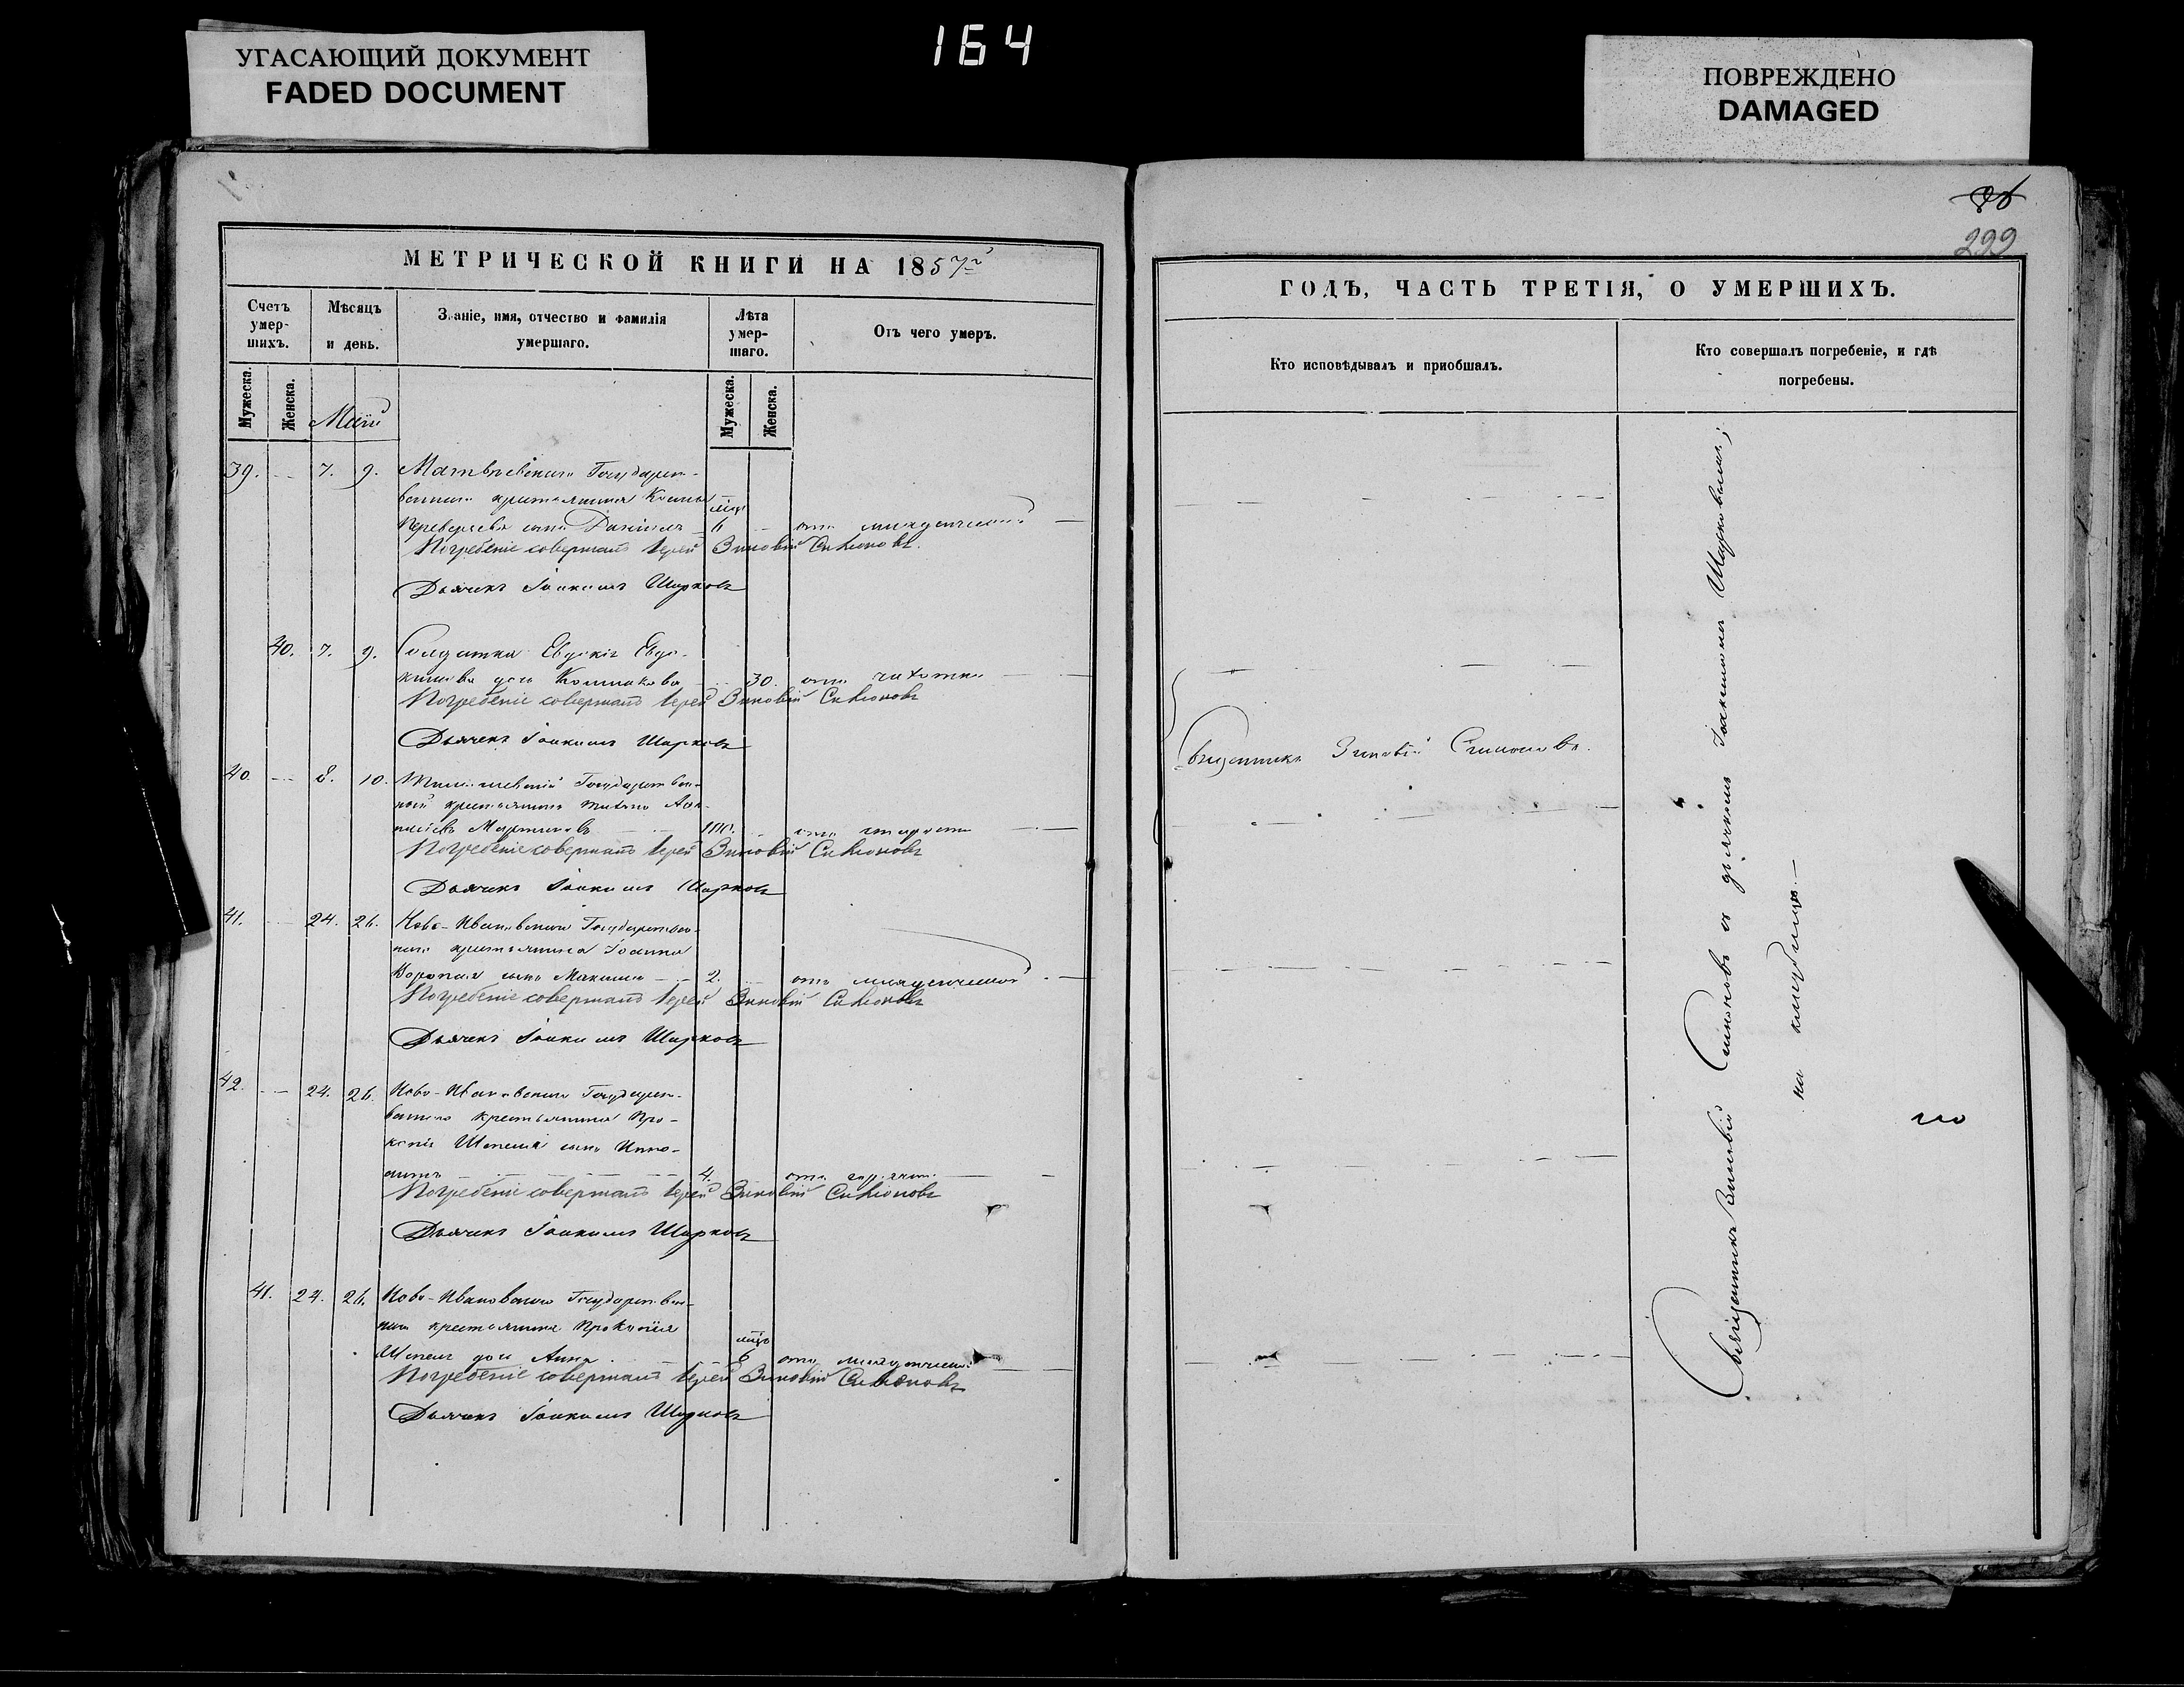 УГАСАЮЩИЙ ДОКУМЕНТ
FADED DOCUMENT
164
ПОВРЕЖДЕНО
DAMAGED
299
МЕТРИЧЕСКОЙ КНИГИ НА 1857й
Счетъ умер-шихъ.
Мужеска.
Женска.
Мѣсяцъ и день.
Званіе, имя, отчество и фамилія умершаго.
Лѣта умер-шаго.
Мужеска.
Женска.
Отъ чего умеръ.
Маій
39. 7. 9. Матвѣевскаго Государст-
веннаго крестьянина Космы
сына Даніилъ 6 отъ младенческой
Погребеніе совершалъ Іерей Зиновій Симоновъ.
Дьячекъ Іоакимъ Шарковъ
40. 7. 9. Солдатка Евдокія Евдо-
кимова дочь 30. отъ чахотки
Погребеніе совершалъ Іерей Зиновій Симоновъ
Дьячекъ Іоакимъ Шарковъ
40. 8. 10. Государствен-
ный крестьянинъ
Мартыновъ отъ старости
Погребеніе совершалъ Іерей Зиновій Симоновъ
Дьячекъ Іоакимъ Шарковъ
41. 24. 26. Ново-Ивановскаго Государствен-
наго крестьянина Іоанна
сынъ Максимъ 2. отъ младенческой
Погребеніе совершалъ Іерей Зиновій Симоновъ
Дьячекъ Іоакимъ Шарковъ
42. 24. 26. Ново-Ивановскаго Государст-
веннаго крестьянина Про-
копія Шпеля сынъ Иппо-
литъ 4. отъ горячки
Погребеніе совершалъ Іерей Зиновій Симоновъ
Дьячекъ Іоакимъ Шарковъ
41. 24. 26. Ново-Ивановскаго Государствен-
наго крестьянина Прокопія
Шпеля дочь Анна 6 отъ младенческой
Погребеніе совершалъ Іерей Зиновій Симоновъ
Дьячекъ Іоакимъ Шарковъ
ГОДЪ, ЧАСТЬ ТРЕТІЯ, О УМЕРШИХЪ.
Кто исповѣдывалъ и пріобщалъ.
Кто совершалъ погребеніе, и гдѣ
погребены.
Священникъ Зиновій Симоновъ.
Священникъ Зиновій Симоновъ съ дьячкомъ Іоакимомъ Шарковымъ;
на кладбищѣ.